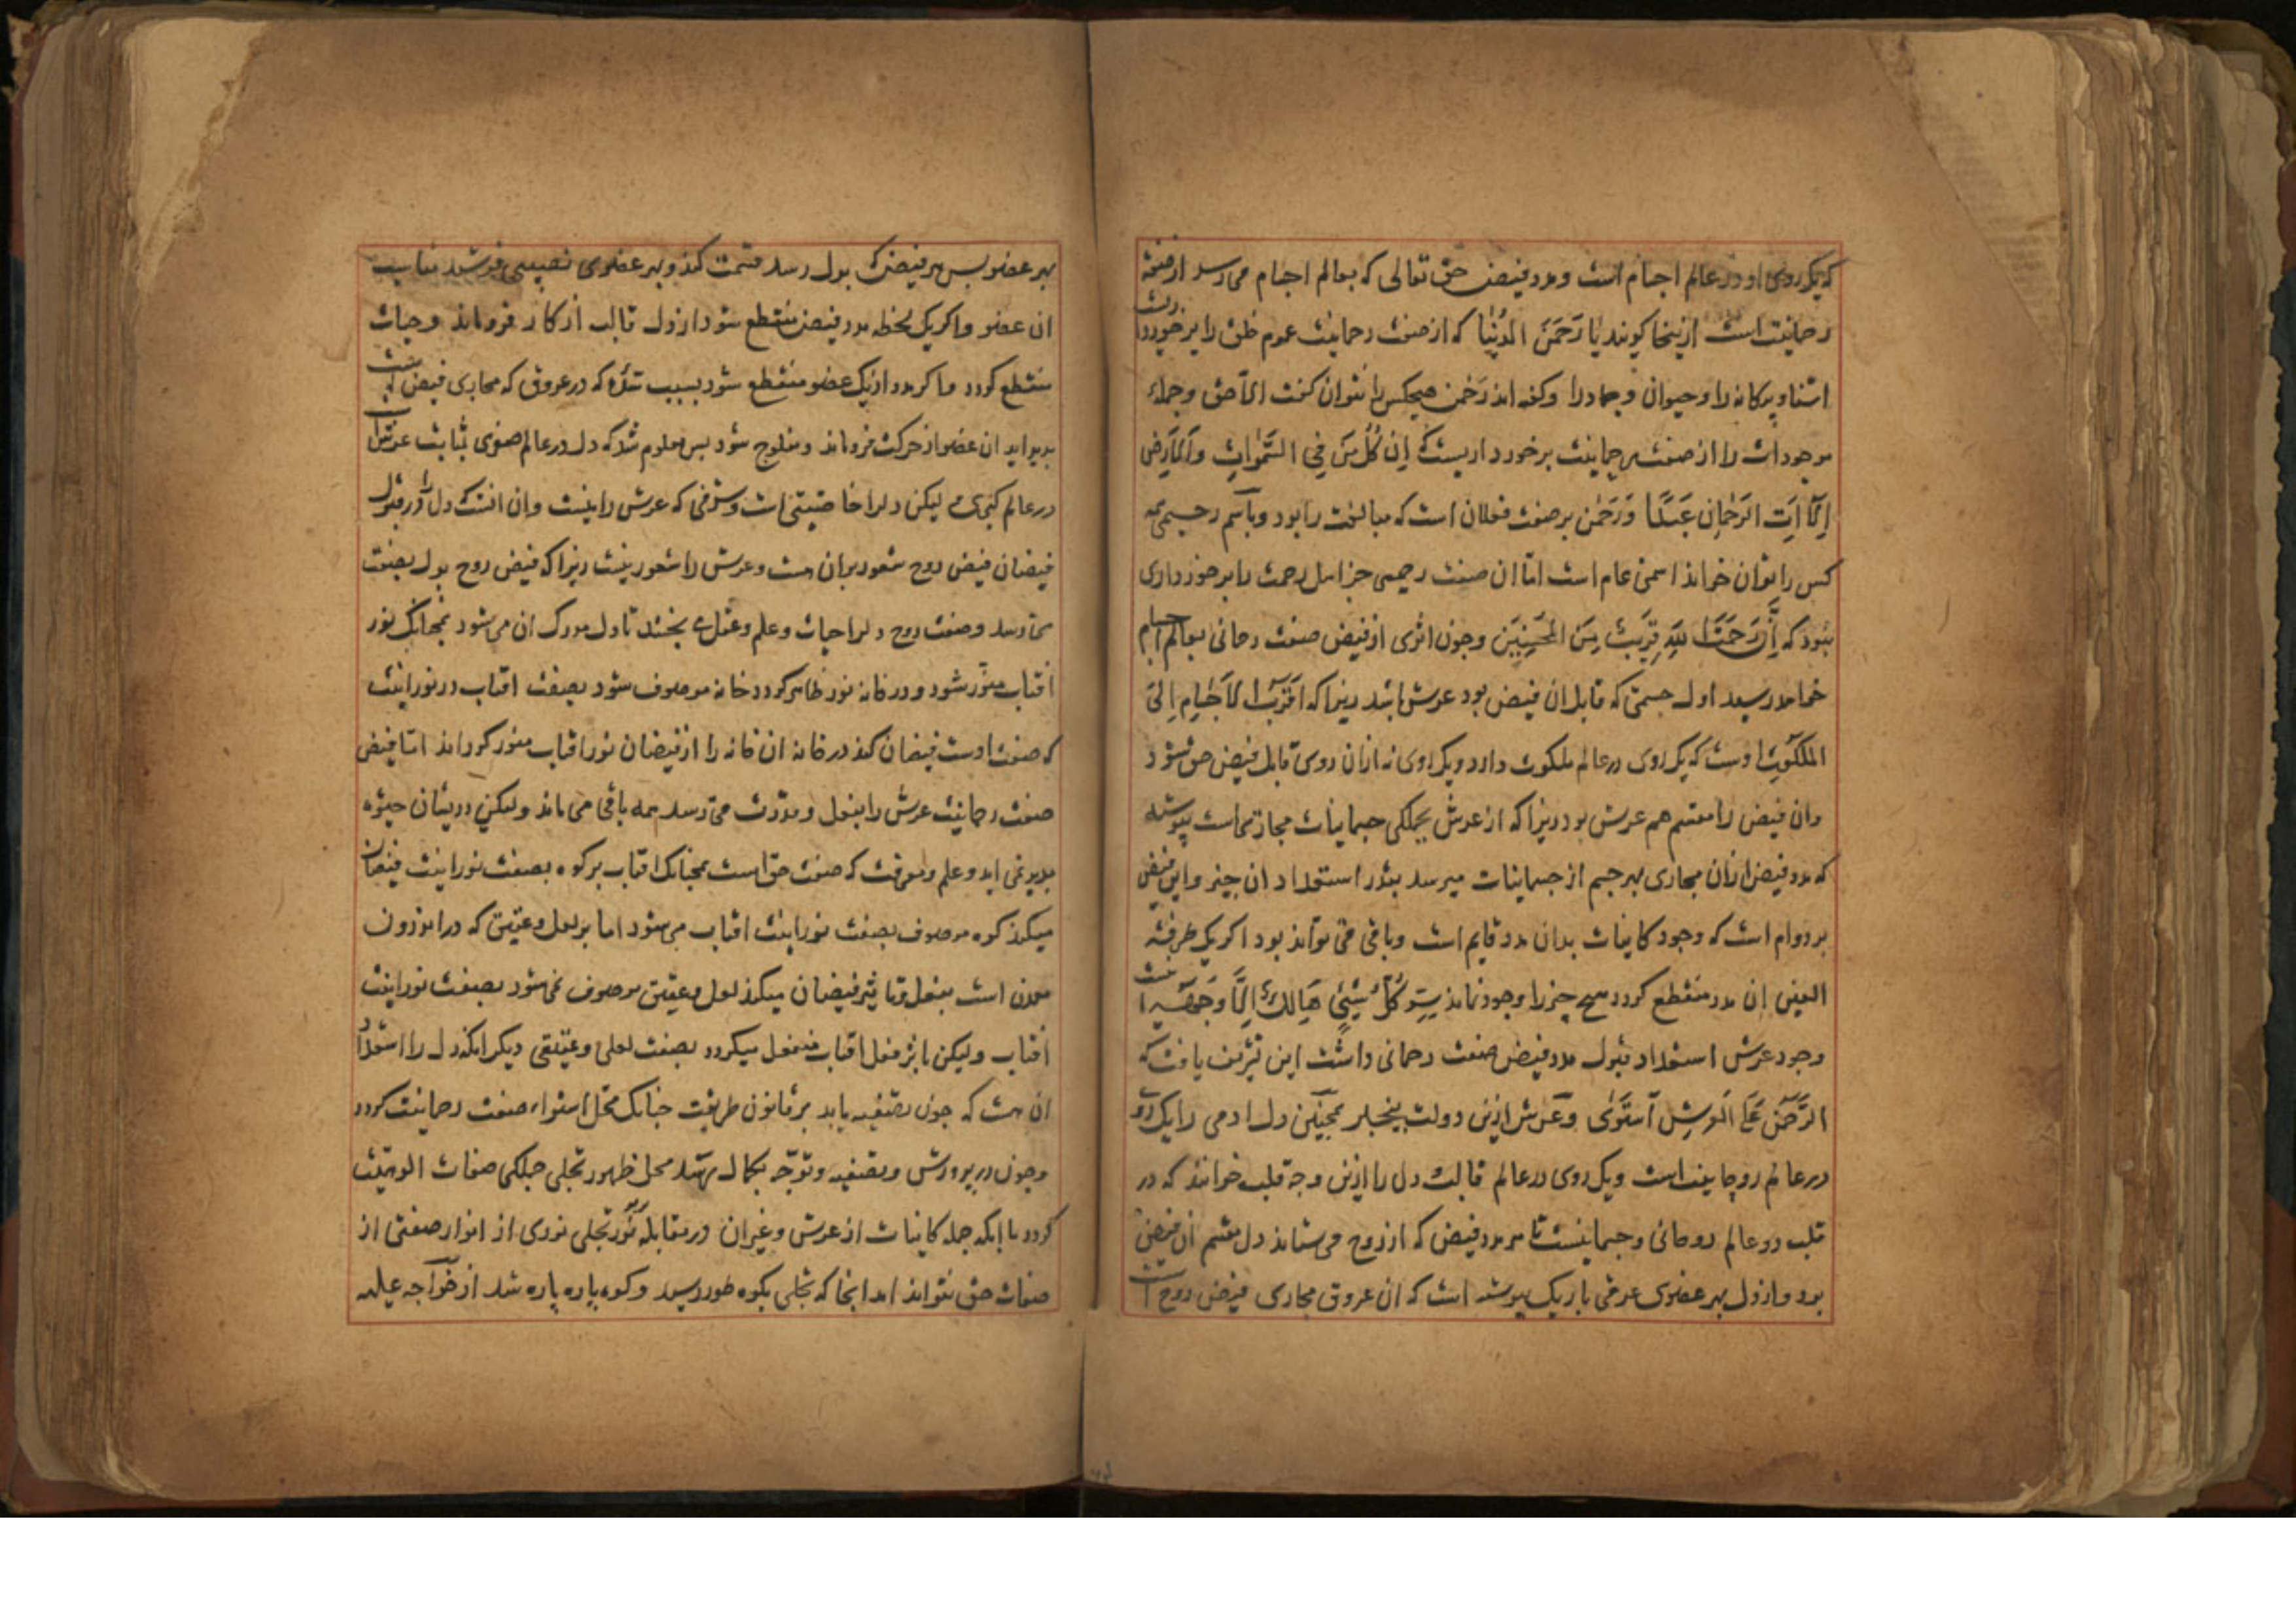 که یک روی او در عالم اجسام است و مدد فیض حق تعالی که بعالم اجسام می رسد از صفت
رحمانیت است ازینجا کویند یا رَحمَنَ الدُنیٰا که از صفت رحمانیت عموم خلق را برخورداریست
اشنا و بیکانه را و حیوان و جماد را و کفته اند رَحمٰن هیچکس را نتوان کفت الّا حق و جمله
موجودات را از صفت رحمانیت برخورداریست که اِن کُلُّ مَن فِی السَّمٰواتِ وَالاَرضِ
اِلّا اٰتِی الرَحمٰنِ عَبدًا وَرَحمٰن بر صیغت فعلان است که مبالغت را بود و باسم رحیمی همه
کس را توان خواند اسمی عام است امّا ان صفت رحیمی جز اهل رحمت را برخورداری
نبود که اِنَّ رَحمَتَ اللهِ قَریبٌ مِنَ المُحسِنِینَ و چون اثری از فیض صفت رحمانی بعالم اجسام
خواهد رسید اول جسمی که قابل ان فیض بود عرش باشد زیرا که اَقرَبُ الاَجسٰامِ اِلیَ
المَلَکُوتِ اوست که یک روی در عالم ملکوت دارد و یک روی نه ازان روی قابل فیض حق شود
وان فیض را مقسم هم عرش بود زیرا که از عرش بجملکی جسمانیات مجاریهاست پیوسته
که مدد فیض ازان مجاری بهر جسم از جسمانیات میرسد بقدر استعداد ان چیز و این فیض
بر دوام است که وجود کاینات بدان مدد قایم است و باقی می تواند بود اکر یک طرفة
العین ان مدد منقطع کردد هیچ چیز را وجود نماند سِرِّ کُلُّ شَیْئٍ هٰالِکٌ اِلّٰا وَجهَهُ اینست
وجود عرش استعداد قبول مدد فیض صفت رحمانی داشت این تشریف یافت که
الرَّحمٰنُ عَلَی العَرشِ اَستَوٰی و عَرش ازین دولت بیخبر همچنین دل ادمی را یک روی
در عالم روحانیت است و یک روی در عالم قالب دل را ازین وجه قلب خوانند که در
قلب دو عالم روحانی و جسمانیست تا هر مدد فیض که از روح می ستاند دل مقسم ان فیض
بود و از دل بهر عضوی عرقی باریک پیوسته است که ان عروق مجاری فیض روح است
بهر عضو پس هر فیض که بدل رسد قسمت کند و بهر عضوی نصیبی فرستد مناسب
ان عضو و اکر یک لحظه مدد فیض منقطع شود از دل قالب از کار فروماند و حیات
منقطع کردد و اکر مدد از یک عضو منقطع شود بسبب سدّه که در عروق که مجاری فیض است
پدید اید ان عضو از حرکت فروماند و مفلوج شود پس معلوم شد که دل در عالم صغری بمثابت عرش است
در عالم کبری لیکن دلرا خاصیتی است و شرفی که عرش را نیست وان انست که دل را در قبول
فیضان فیض روح شعور بران هست و عرش را شعور نیست زیرا که فیض روح بدل بصفت
می رسد و صفت روح دلرا حیات و علم و عقل می بخشد تا دل مدرک ان می شود همچنانک نور
افتاب منوّر شود و در خانه نور ظاهر کردد خانه موصوف شود بصفت افتاب در نورانیت
که صفت اوست فیضان کند در خانه ان خانه را از فیضان نور افتاب منور کرداند امّا فیض
صفت رحمانیت عرش را بفعل و قدرت می رسد همه باقی می ماند ولیکن دریشان حیوة
پدید نمی اید و علم و معرفت که صفت حق است همچنانک افتاب بر کوه بصفت نورانیت فیضان
میکند کوه موصوف بصفت نورانیت افتاب می شود اما بر لعل و عقیق که در اندرون
معدن است بفعل و تاثیر فیضان میکند لعل و عقیق موصوف نمی شود بصفت نورانیت
افتاب ولیکن باثر فعل افتاب منفعل میکردد بصفت لعلی و عقیقی دیکر انکه دل را استعداد
ان هست که چون تصفیه یابد بر قانون طریقت چنانک محل استواء صفت رحمانیت کردد
و چون در پرورش و تصفیه و توجّه بکمال رسد محل ظهور تجلی جملکی صفات الوهیّت
کردد با انکه جمله کاینات از عرش و غیر ان در مقابله نور تجلی نوری از انوار صفتی از
صفات حق نتواند امد انجا که تجلی بکوه طور رسید و کوه پاره پاره شد از خواجه علیه